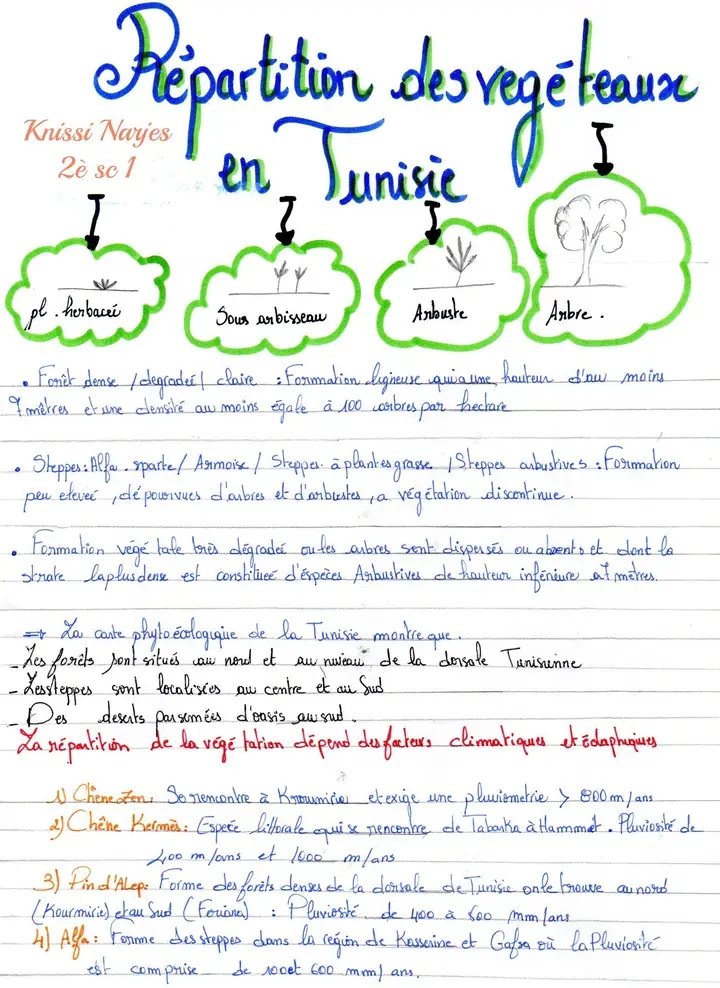 Répartition des vegéteaux
en Tunisie
Knissi Narjes
2è sc 1
pl. herbaceé
Sous arbisseau
Arbuste
Arbre.
• Forêt dense / degradeé / claire : Formation ligneuse qui a une hauteur d'au moins
7 mêtres et une densité au moins égale à 100 arbres par hectare
• Steppes : Alfa. sparte / Armoise / Steppes à plantes grasse / Steppes arbustives : Formation
peu eleveé, dépourvues d'arbres et d'arbustes, a végétation discontinue.
• Formation végétale très dégradeé ou les arbres sont dispersés ou absents et dont la
strate la plus dense est constitueé d'éspèces Arbustives de hauteur inférieure à 7 mêtres.
=> La carte phytoécologique de la Tunisie montre que.
- Les forêts sont situés au nord et au niveau de la dorsale Tunisienne
- Les steppes sont localisées au centre et au Sud
- Des deserts parsemées d'oasis au sud.
La répartition de la végétation dépend des facteurs climatiques et édaphiques
1) Chêne Zen : Se rencontre à Kroumirie et exige une pluviometrie > 800 m/ans
2) Chêne Kermès : Espèce littorale qui se rencontre de Tabarka à Hammamet. Pluviosité de
400 m/ans et 1000 m/ans
3) Pin d'Alep : Forme des forêts denses de la dorsale de Tunisie on le trouve au nord
(Kourmirie) et au Sud (Feriana) : Pluviosité de 400 à 600 mm/ans
4) Alfa : Forme des steppes dans la région de Kasserine et Gafsa où la Pluviosité
est comprise de 100 et 600 mm/ans.